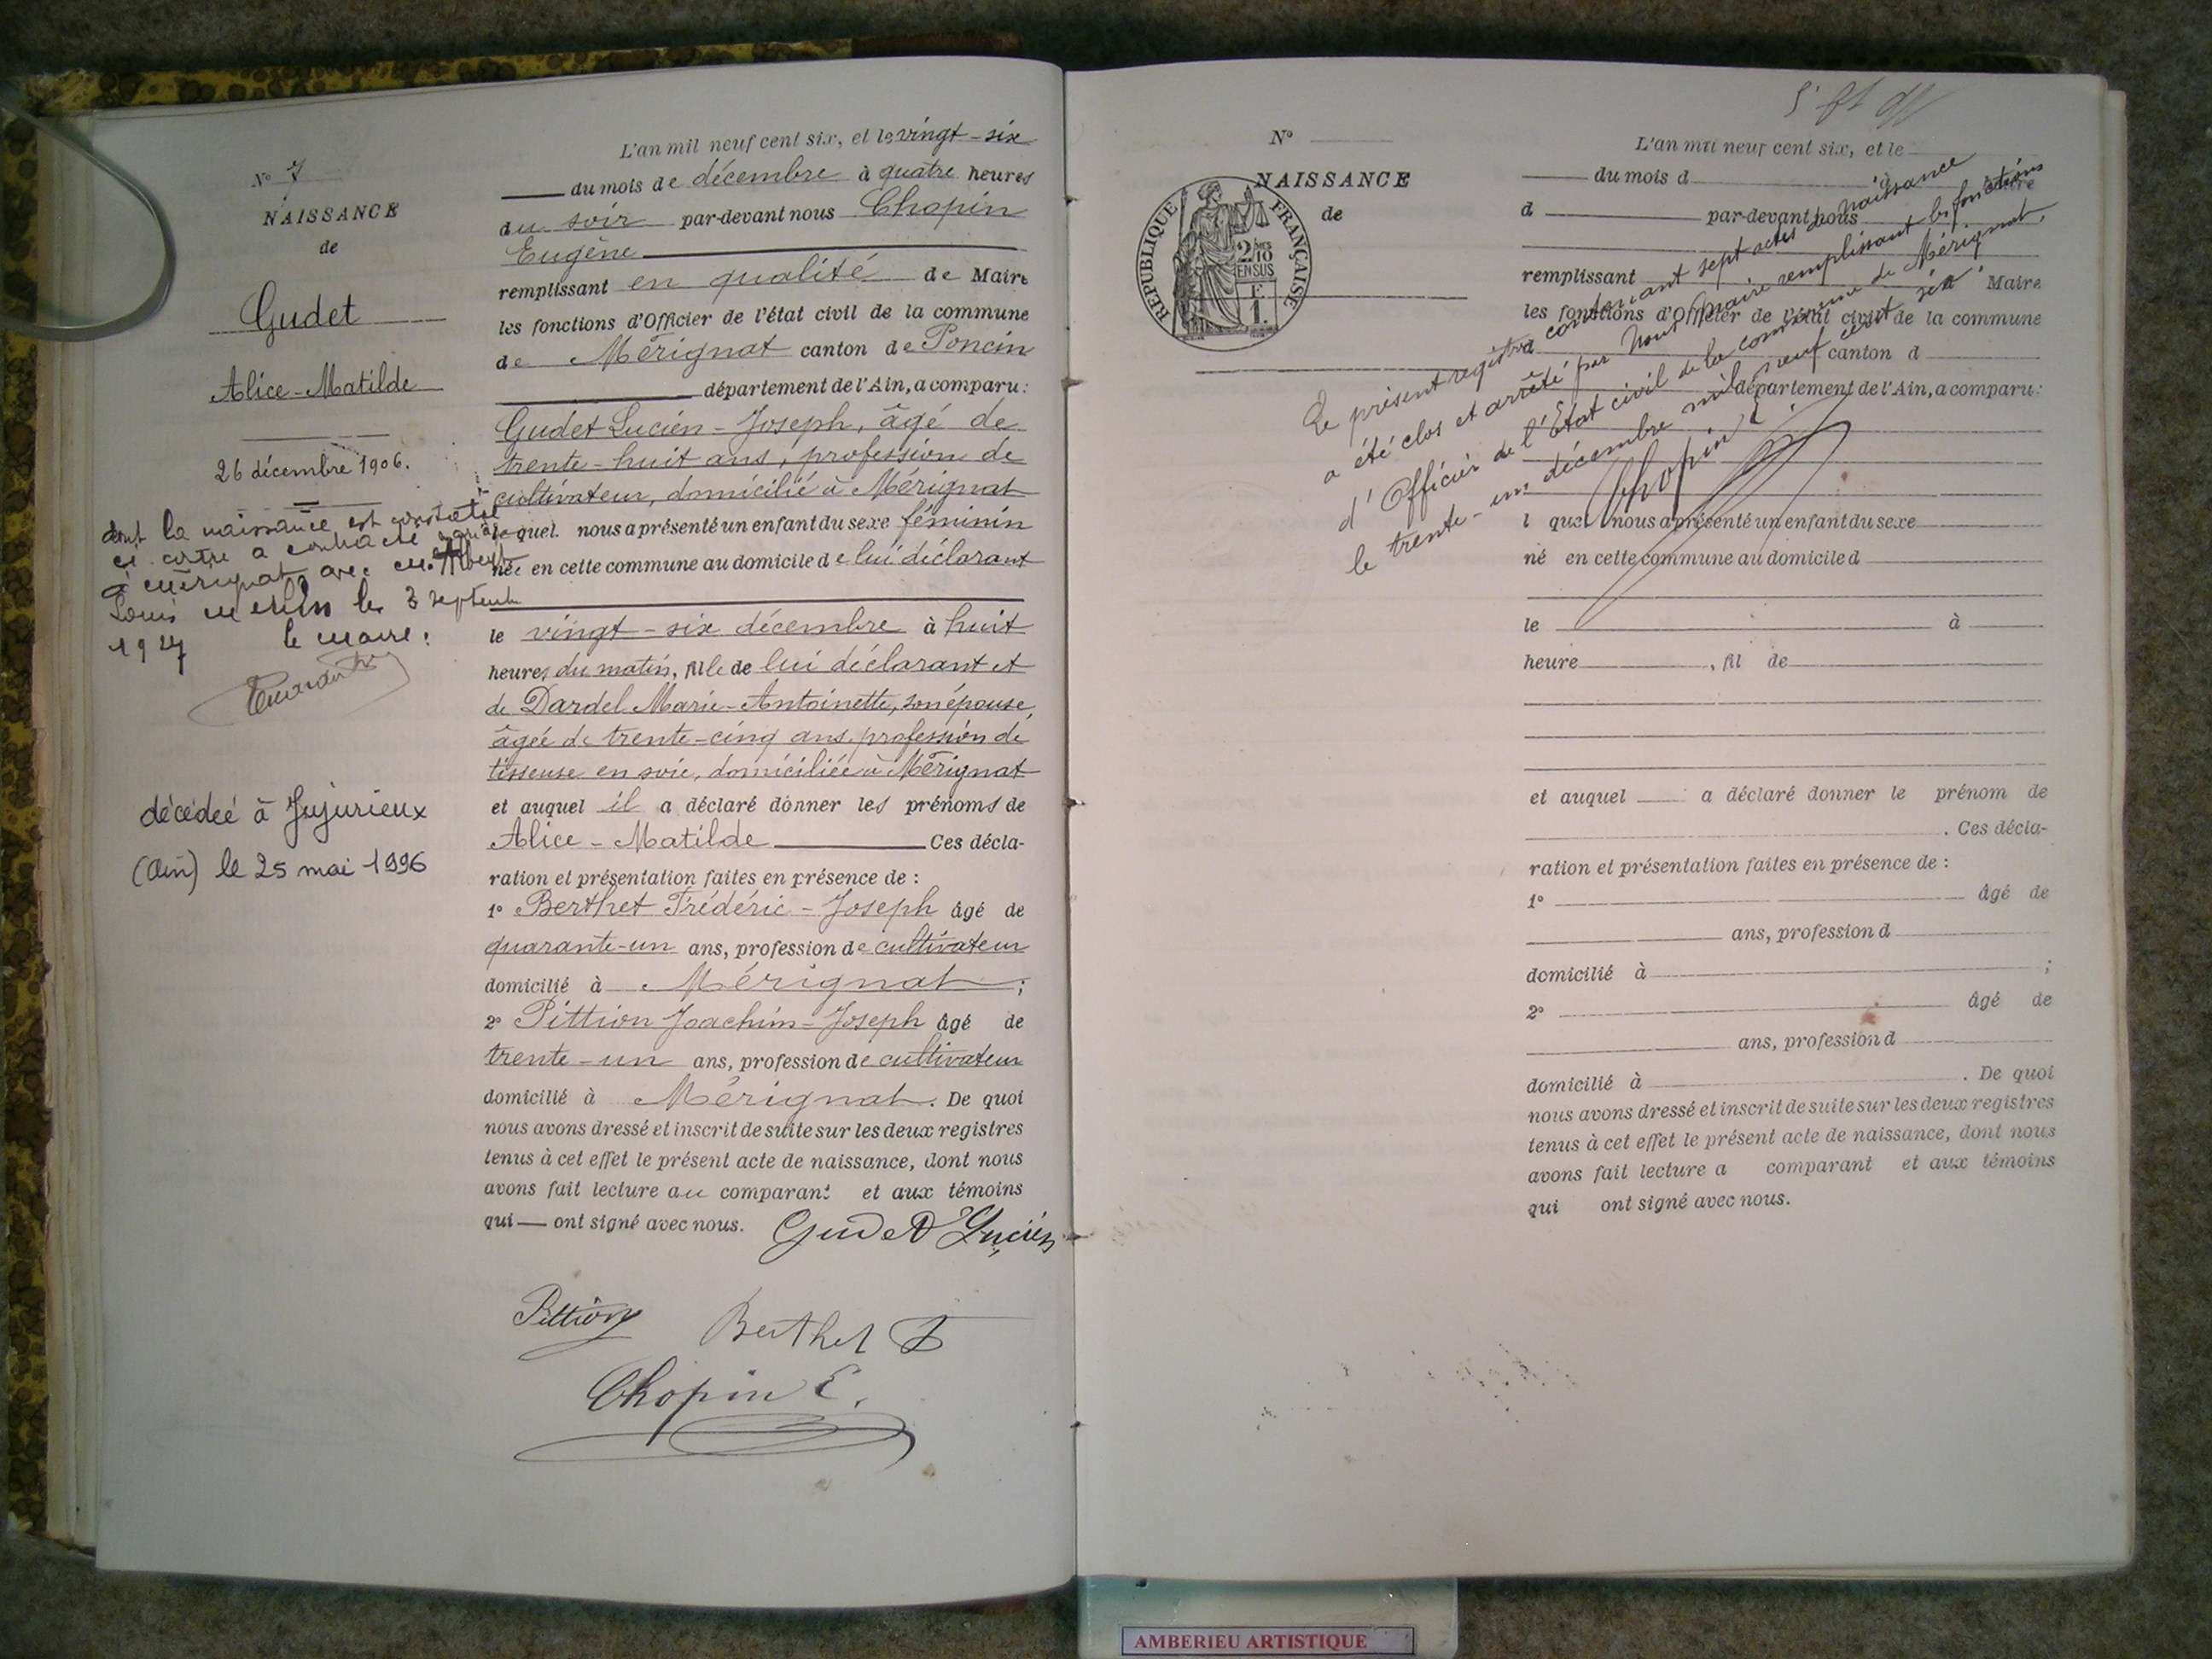 N° 7
NAISSANCE
de
Gudet
Alice-Matilde
26 décembre 1906.
dont la naissance est constatée
ci contre a contracté mariage
à Mérignat avec M. Albert
Louis le 3 septembre
1927 le Maire :
décédée à Jujurieux
(Ain) le 25 mai 1996
L'an mil neuf cent six, et le vingt-six
du mois de décembre à quatre heures
du soir par-devant nous Chopin
Eugène
remplissant en qualité de Maire
les fonctions d'Officier de l'état civil de la commune
de Mérignat canton de Poncin
département de l'Ain, a comparu :
Gudet Lucien-Joseph, âgé de
trente-huit ans, profession de
cultivateur, domicilié à Mérignat
lequel nous a présenté un enfant du sexe féminin
née en cette commune au domicile de lui déclarant
le vingt-six décembre à huit
heures du matin, fille de lui déclarant et
de Dardel Marie-Antoinette, son épouse,
âgée de trente-cinq ans, profession de
tisseuse en soie, domiciliée à Mérignat
et auquel il a déclaré donner les prénoms de
Alice-Matilde Ces décla-
ration et présentation faites en présence de :
1° Berthet Frédéric-Joseph âgé de
quarante-un ans, profession de cultivateur
domicilié à Mérignat ;
2° Pittion Joachim-Joseph âgé de
trente-un ans, profession de cultivateur
domicilié à Mérignat. De quoi
nous avons dressé et inscrit de suite sur les deux registres
tenus à cet effet le présent acte de naissance, dont nous
avons fait lecture au comparant et aux témoins
qui — ont signé avec nous. Gudet Lucien
Pittion Berthet F
Chopin E.
N°
NAISSANCE
de
RÉPUBLIQUE FRANÇAISE
2/10
EN SUS
L'an mil neuf cent six, et le
du mois d à heure
d par-devant nous
remplissant Maire
les fonctions d'Officier de l'état civil de la commune
d canton d
département de l'Ain, a comparu :
Le présent registre contenant sept actes de naissance
a été clos et arrêté par Nous Maire remplissant les fonctions
d'Officier de l'Etat civil de la commune de Mérignat,
le trente-un décembre mil neuf cent six.
Chopin E
l quel nous a présenté un enfant du sexe
né en cette commune au domicile d
le à
heure , fil de
et auquel a déclaré donner le prénom de
. Ces décla-
ration et présentation faites en présence de :
1° âgé de
ans, profession d
domicilié à ;
2° âgé de
ans, profession d
domicilié à . De quoi
nous avons dressé et inscrit de suite sur les deux registres
tenus à cet effet le présent acte de naissance, dont nous
avons fait lecture a comparant et aux témoins
qui ont signé avec nous.
AMBERIEU ARTISTIQUE